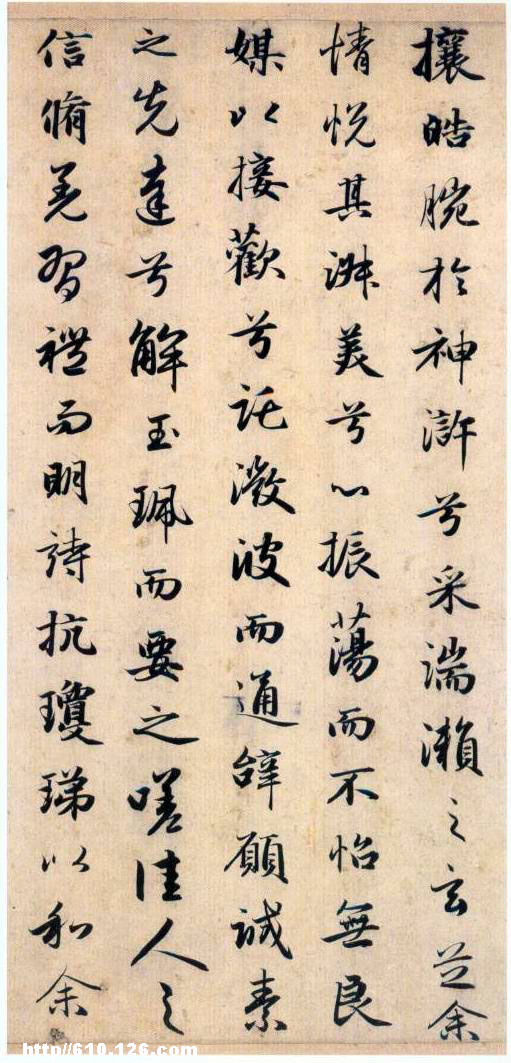 攘皓腕於神滸兮采湍瀨之玄芝余
情悅其淑美兮心振蕩而不怡無良
媒以接歡兮託微波而通辭願誠素
之先達兮解玉珮而要之嗟佳人之
信脩羌習禮而明詩抗瓊珶以和余
http//610.126.com